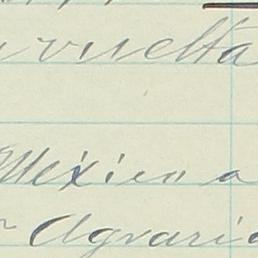 vuelta
Mexicana
Agrari